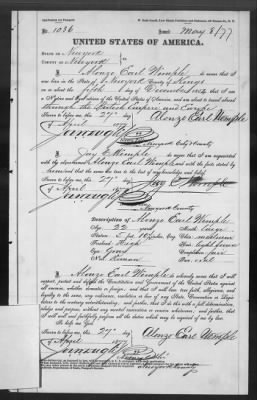 No. 1036 Issued May 8/77
UNITED STATES OF AMERICA.
STATE OF New York
COUNTY OF New York
I, Alonzo Earl Wemple, do swear that I was
born in the State of New York, County of Kings
on the fifth day of December 1854; that I am
a Native and Loyal Citizen of the United States of America, and am about to travel abroad
through the British Empire and Europe
Sworn to before me, this 27th day Alonzo Earl Wemple
of April 1877
Notary Public
New York City & County
I, Jay C. Wemple, do swear that I am acquainted
with the above named Alonzo Earl Wemple, and with the facts stated by
him, and that the same are true to the best of my knowledge and belief.
Sworn to before me, this 27th day
of April 1877 Jay C. Wemple
New York County
Description of Alonzo Earl Wemple
Age, 22 years
Stature, 5 feet
Forehead, High
Eyes, Gray
Nose, Roman
Mouth, Large
Chin, medium
Hair, Light brown
Complexion, fair
Face, oval
I, Alonzo Earl Wemple, do solemnly swear that I will
support, protect and defend the Constitution and Government of the United States against
all enemies, whether domestic or foreign; and that I will bear true faith, allegiance, and
loyalty to the same, any ordinance, resolution or law of any State, Convention or Legis-
lature to the contrary notwithstanding; and further, that I do this with a full determination,
pledge, and purpose, without any mental reservation or evasion whatsoever; and further, that
I will well and faithfully perform all the duties which may be required of me by law.
So help me God.
Sworn to before me, this 27th day Alonzo Earl Wemple
of April 1877
Notary Public
New York County